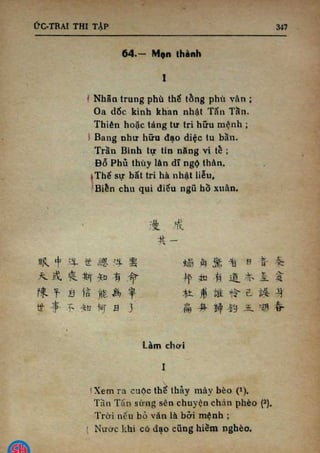 ỨC-TRAI THI TẬP 347
64.— Mạn thành
I
Nhãn trung phù thế tổng phù vân ;
Oa dốc kinh khan nhật Tấn Tần.
Thiên hoặc táng tư tri hữu mệnh ;
Bang như hữu đạo diệc tu bần.
Trần Bình tự tín năng vi tể ;
Đỗ Phủ thùy lân dĩ ngộ thân.
Thế sự bất tri hà nhật liễu,
Biển chu qui điếu ngũ hồ xuân.
漫 成
其 一
眼 中 浮 世 總 浮 雲 蝸 角 驚 看 日 晉 秦
天 或 喪 斯 知 有 命 邦 如 有 道 亦 羞 貧
陳 平 自 信 能 為 宰 杜 甫 誰 怜 已 誤 身
世 事 不 知 何 日 了 扁 舟 歸 釣 五 湖 春
Làm chơi
I
Xem ra cuộc thế thảy mây bèo (¹).
Tần Tấn sừng sên chuyện chán phèo (²).
Trời nếu bỏ văn là bởi mệnh ;
Nước khi có đạo cũng hiềm nghèo.